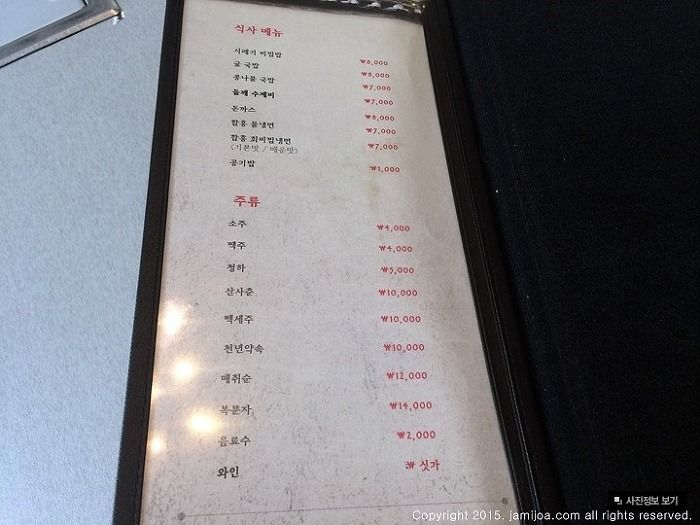 식사 메뉴
시래기 비빔밥 ₩8,000
굴 국밥 ₩8,000
콩나물 국밥 ₩7,000
들깨 수제비 ₩7,000
돈까스 ₩8,000
함흥 물냉면 ₩7,000
함흥 회비빔냉면 ₩7,000
(기본맛 / 매운맛)
공기밥 ₩1,000
주류
소주 ₩4,000
맥주 ₩4,000
청하 ₩5,000
산사춘 ₩10,000
백세주 ₩10,000
천년약속 ₩10,000
매취순 ₩12,000
복분자 ₩14,000
음료수 ₩2,000
와인 ₩ 싯가
사진정보 보기
Copyright 2015. jamijoa.com all rights reserved.